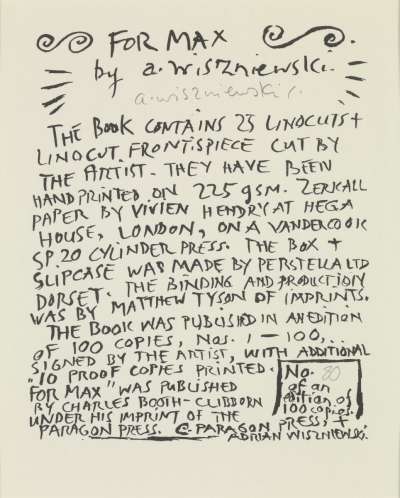 FOR MAX
by a. wiszniewski.
a. wiszniewski.
THE BOOK CONTAINS 25 LINOCUTS +
LINOCUT FRONTISPIECE CUT BY
THE ARTIST. THEY HAVE BEEN
HANDPRINTED ON 225 gsm. ZERKALL
PAPER BY VIVIEN HENDRY AT HEGA
HOUSE, LONDON, ON A VANDERCOOK
SP.20 CYLINDER PRESS. THE BOX +
SLIPCASE WAS MADE BY PERSTELLA LTD
DORSET. THE BINDING AND PRODUCTION
WAS BY MATTHEW TYSON OF IMPRINTS.
THE BOOK WAS PUBLISHED IN AN EDITION
OF 100 COPIES, Nos. 1 — 100,
SIGNED BY THE ARTIST, WITH ADDITIONAL
10 PROOF COPIES PRINTED.
"FOR MAX" WAS PUBLISHED
BY CHARLES BOOTH-CLIBBORN
UNDER HIS IMPRINT OF THE
PARAGON PRESS. © PARAGON PRESS +
ADRIAN WISZNIEWSKI.
No. 30
of an
edition of
100 copies.